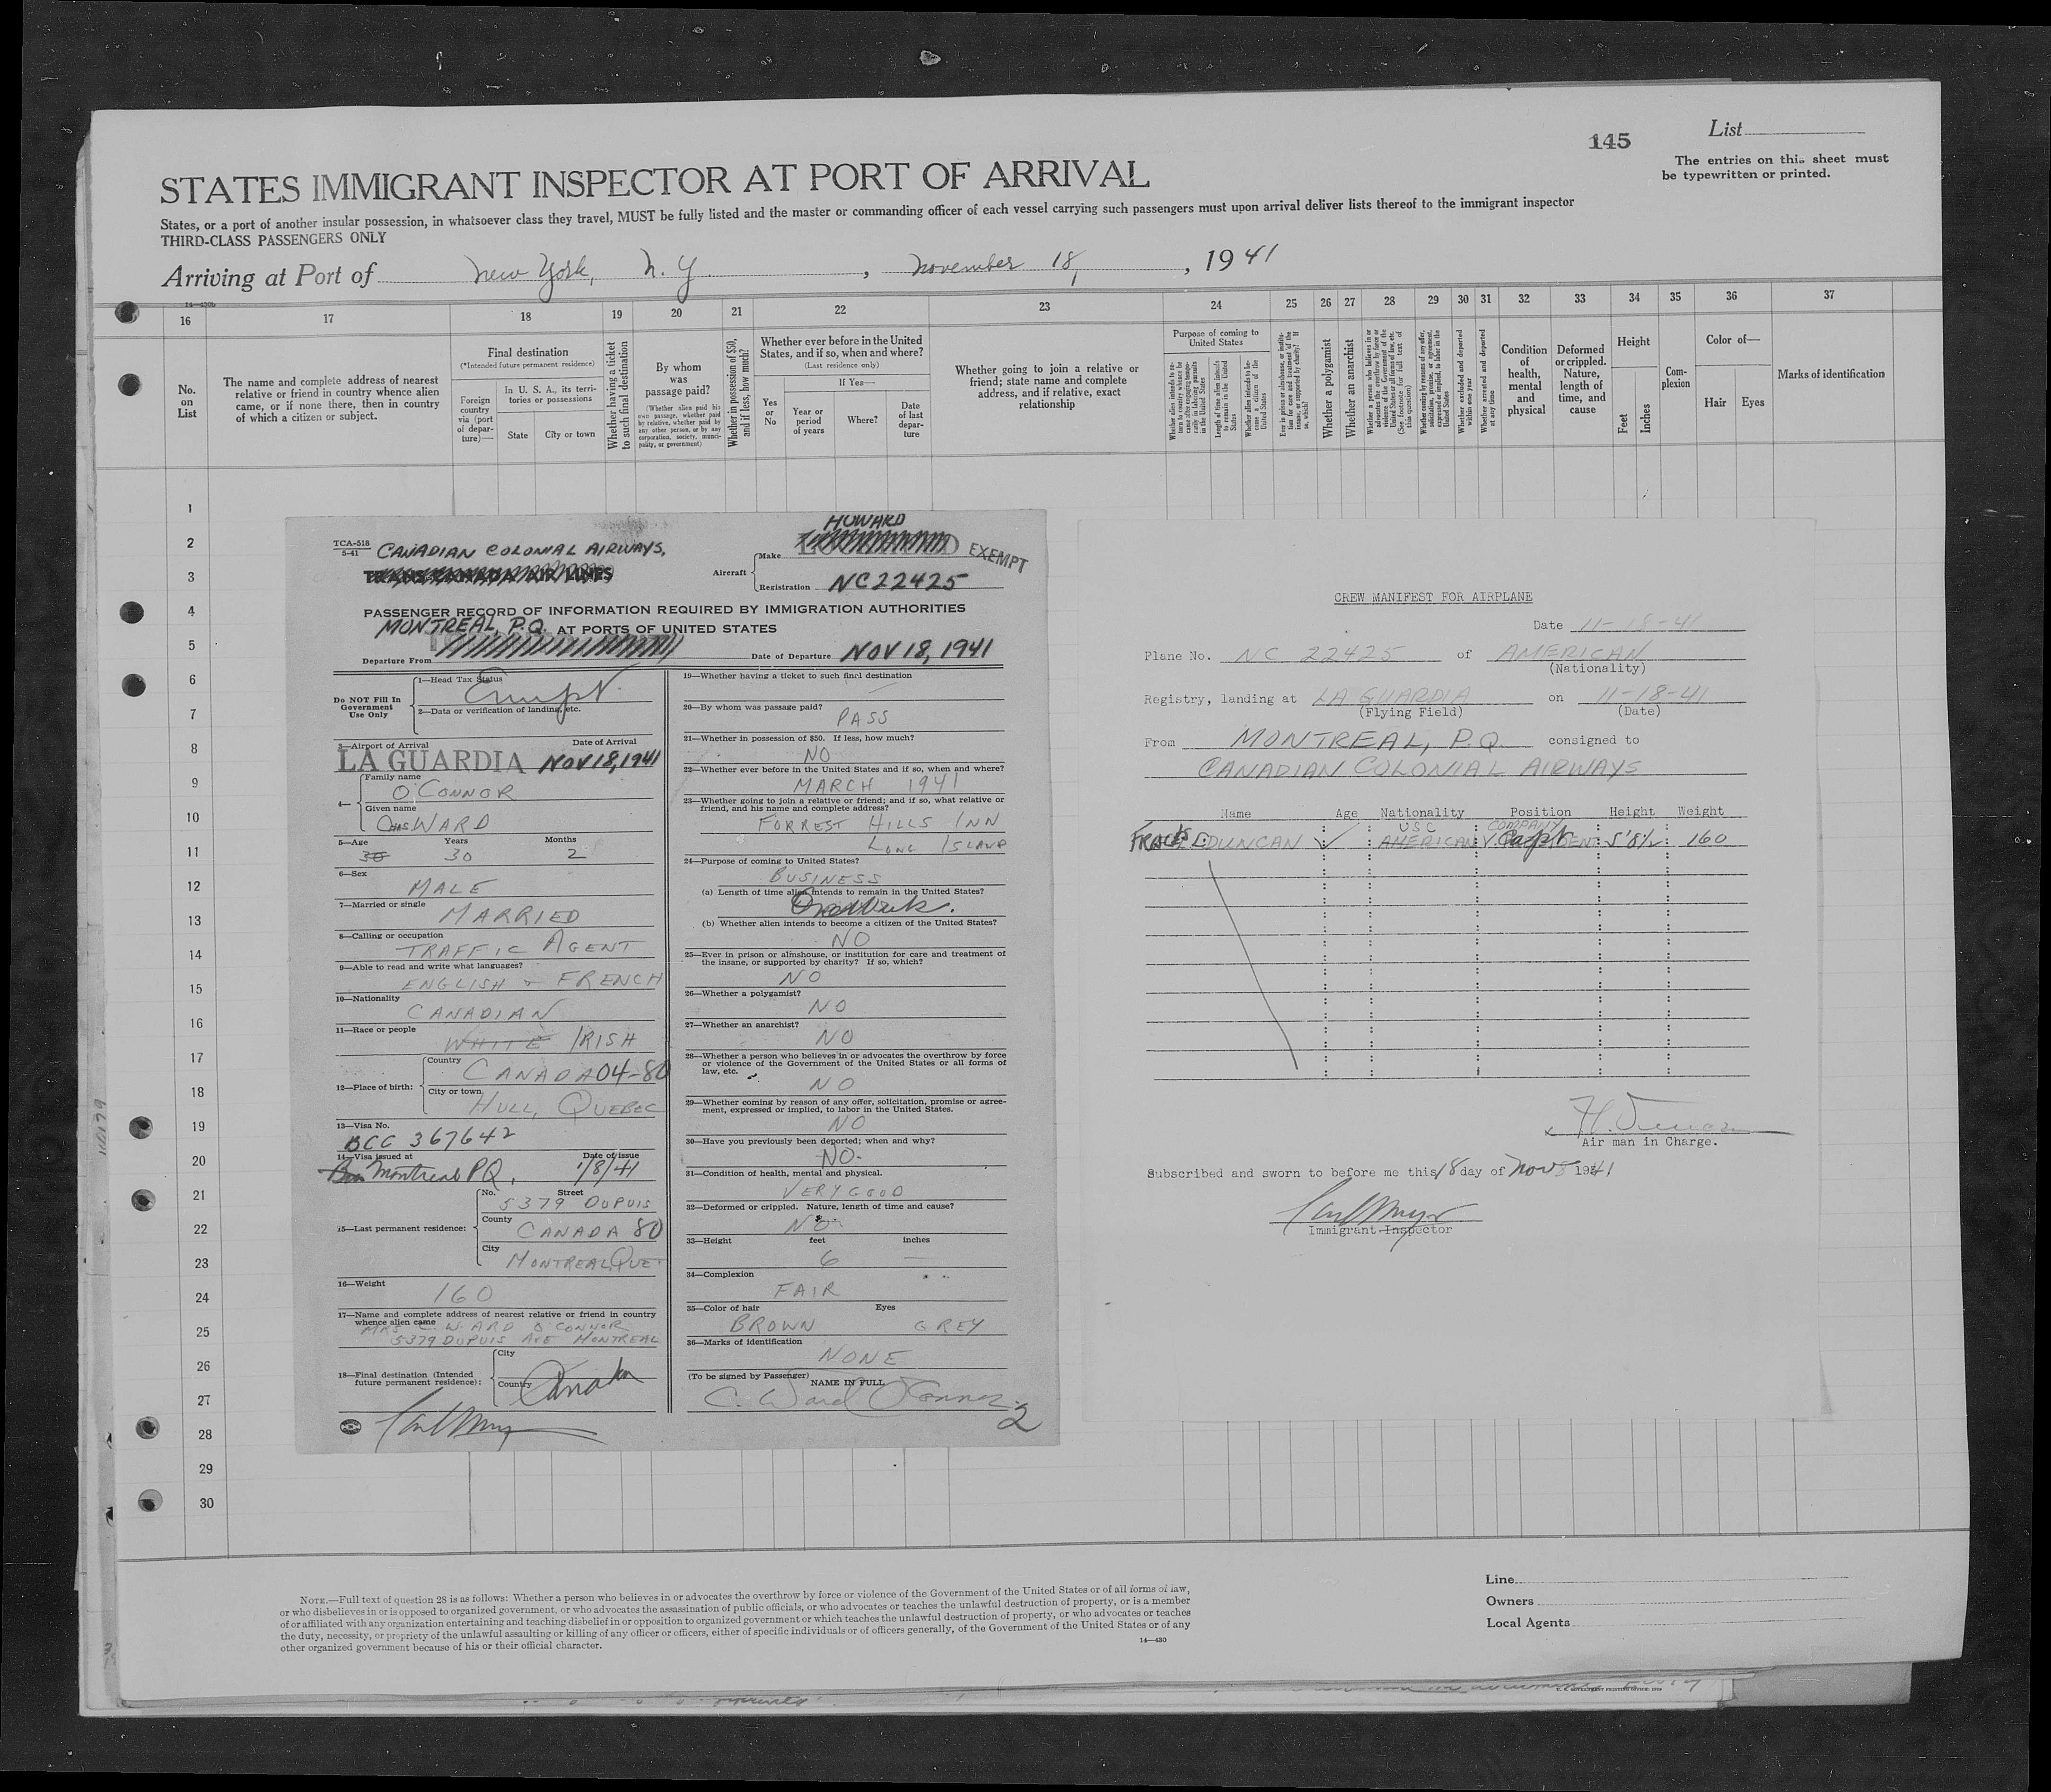 145
List
The entries on this sheet must
be typewritten or printed.
STATES IMMIGRANT INSPECTOR AT PORT OF ARRIVAL
States, or a port of another insular possession, in whatsoever class they travel, MUST be fully listed and the master or commanding officer of each vessel carrying such passengers must upon arrival deliver lists thereof to the immigrant inspector
THIRD-CLASS PASSENGERS ONLY
Arriving at Port of New York, N. Y. , November 18, , 1941
14—430b
16 17 18 19 20 21 22 23 24 25 26 27 28 29 30 31 32 33 34 35 36 37
No. on List
The name and complete address of nearest
relative or friend in country whence alien
came, or if none there, then in country
of which a citizen or subject.
Final destination
(*Intended future permanent residence)
Foreign country via (port of departure)—
In U. S. A., its territories or possessions
State
City or town
Whether having a ticket to such final destination
By whom was passage paid?
(Whether alien paid his own passage, whether paid by relative, whether paid by any other person, or by any corporation, society, municipality, or government)
Whether in possession of $50, and if less, how much?
Whether ever before in the United States, and if so, when and where?
(Last residence only)
Yes or No
If Yes—
Year or period of years
Where?
Date of last departure
Whether going to join a relative or
friend; state name and complete
address, and if relative, exact
relationship
Purpose of coming to United States
Whether alien intends to return to country whence he came after engaging temporarily in laboring pursuits in the United States
Length of time alien intends to remain in the United States
Whether alien intends to become a citizen of the United States
Whether a polygamist
Whether an anarchist
Whether excluded and deported within one year
Whether arrested and deported at any time
Condition of health, mental and physical
Deformed or crippled. Nature, length of time, and cause
Height
Feet
Inches
Complexion
Color of—
Hair
Eyes
Marks of identification
1
2
3
4
5
6
7
8
9
10
11
12
13
14
15
16
17
18
19
20
21
22
23
24
25
26
27
28
29
30
TCA-518
5-41
CANADIAN COLONIAL AIRWAYS.
TRANS-CANADA AIR LINES
HOWARD
Aircraft
Make
EXEMPT
Registration NC22425
PASSENGER RECORD OF INFORMATION REQUIRED BY IMMIGRATION AUTHORITIES
AT PORTS OF UNITED STATES
MONTREAL, P.Q.
Departure From
Date of Departure NOV 18, 1941
Do NOT Fill In
Government
Use Only
1—Head Tax Status
Exempt
2—Data or verification of landing, etc.
3—Airport of Arrival Date of Arrival
LA GUARDIA NOV 18, 1941
4—
Family name
O'CONNOR
Given name
CHAS WARD
5—Age Years Months
30 30 2
6—Sex
MALE
7—Married or single
MARRIED
8—Calling or occupation
TRAFFIC AGENT
9—Able to read and write what languages?
ENGLISH & FRENCH
10—Nationality
CANADIAN
11—Race or people
WHITE IRISH
12—Place of birth:
Country
CANADA 04-80
City or town
HULL, QUEBEC
13—Visa No.
BCC 367642
14—Visa issued at Date of issue
Montreal PQ. 1/8/41
15—Last permanent residence:
No. Street
5379 DUPUIS
County
CANADA 80
City
MONTREAL, QUE.
16—Weight
160
17—Name and complete address of nearest relative or friend in country
whence alien came
MRS C. WARD O'CONNOR
5379 DUPUIS AVE MONTREAL
18—Final destination (Intended
future permanent residence):
City
Country
Canada
19—Whether having a ticket to such final destination
20—By whom was passage paid?
PASS
21—Whether in possession of $50. If less, how much?
NO
22—Whether ever before in the United States and if so, when and where?
MARCH 1941
23—Whether going to join a relative or friend; and if so, what relative or
friend, and his name and complete address?
FORREST HILLS INN
LONG ISLAND
24—Purpose of coming to United States?
BUSINESS
(a) Length of time alien intends to remain in the United States?
One Week.
(b) Whether alien intends to become a citizen of the United States?
NO
25—Ever in prison or almshouse, or institution for care and treatment of
the insane, or supported by charity? If so, which?
NO
26—Whether a polygamist?
NO
27—Whether an anarchist?
NO
28—Whether a person who believes in or advocates the overthrow by force
or violence of the Government of the United States or all forms of
law, etc.
NO
29—Whether coming by reason of any offer, solicitation, promise or agree-
ment, expressed or implied, to labor in the United States.
NO
30—Have you previously been deported; when and why?
NO.
31—Condition of health, mental and physical.
VERY GOOD
32—Deformed or crippled. Nature, length of time and cause?
NO
33—Height feet inches
6 —
34—Complexion
FAIR
35—Color of hair Eyes
BROWN GREY
36—Marks of identification
NONE
(To be signed by Passenger) NAME IN FULL
C. Ward O'Connor
2
CREW MANIFEST FOR AIRPLANE
Date 11-18-41
Plane No. NC 22425 of AMERICAN
(Nationality)
Registry, landing at LA GUARDIA on 11-18-41
(Flying Field) (Date)
From MONTREAL, P.Q. consigned to
CANADIAN COLONIAL AIRWAYS
Name Age Nationality Position Height Weight
USC COMPANY
DUNCAN AMERICAN Capt 5'8½ 160
Air man in Charge.
Subscribed and sworn to before me this 18 day of Nov 1941
Immigrant Inspector
NOTE.—Full text of question 28 is as follows: Whether a person who believes in or advocates the overthrow by force or violence of the Government of the United States or of all forms of law,
or who disbelieves in or is opposed to organized government, or who advocates the assassination of public officials, or who advocates or teaches the unlawful destruction of property, or is a member
of or affiliated with any organization entertaining and teaching disbelief in or opposition to organized government or which teaches the unlawful destruction of property, or who advocates or teaches
the duty, necessity, or propriety of the unlawful assaulting or killing of any officer or officers, either of specific individuals or of officers generally, of the Government of the United States or of any
other organized government because of his or their official character.
14—430
Line
Owners
Local Agents